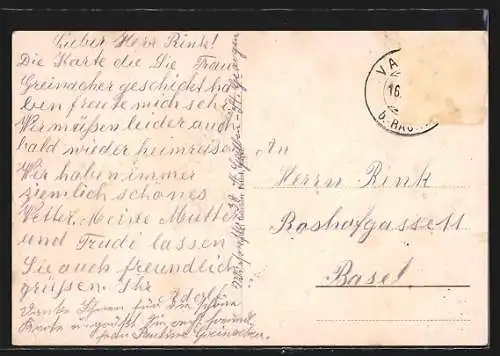 Lieber Herr Rink!
Die Karte die Sie Frau
Greinacher geschickt ha
ben freute mich sehr
Wir müßen leider auch
bald wieder heimreisen
Wir haben immer
ziemlich schönes
Wetter. Meine Mutter
und Trudi lassen
Sie auch freundlich
grüßen. Ihr
Danke Ihnen für die schöne
Karte u. grüßt Sie auch freundl.
Frau Greinacher.
An
Herrn Rink
Roshofgasse 11
Basel.
VA
16.
b. RAG